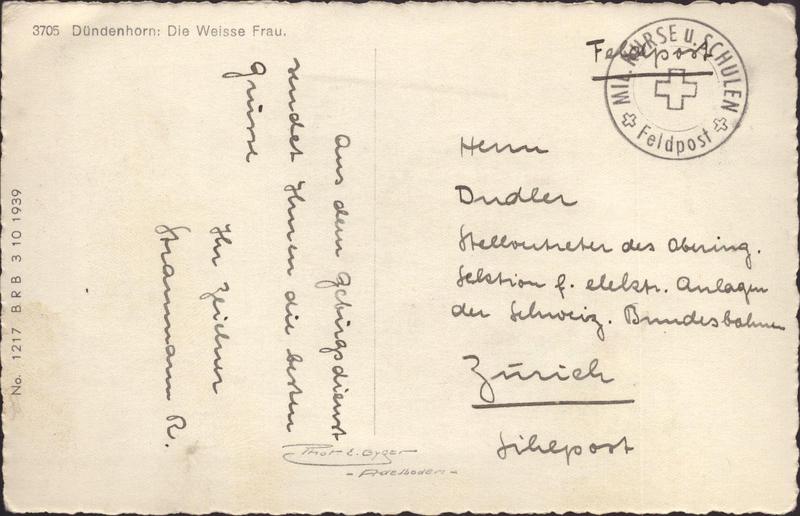 3705 Dündenhorn: Die Weisse Frau.
No. 1217 B R B 3 10 1939
Aus dem Gebirgsdienst
sendet Ihnen die besten
Grüsse
Ihr Zeichner
Strammann R.
Phot. E. Gyger
- Adelboden -
Feldpost
MIL. KURSE U. SCHULEN
Feldpost
Herrn
Dudler
Stellvertreter des Obering.
Sektion f. elektr. Anlagen
der Schweiz. Bundesbahnen
Zürich
Sihlpost